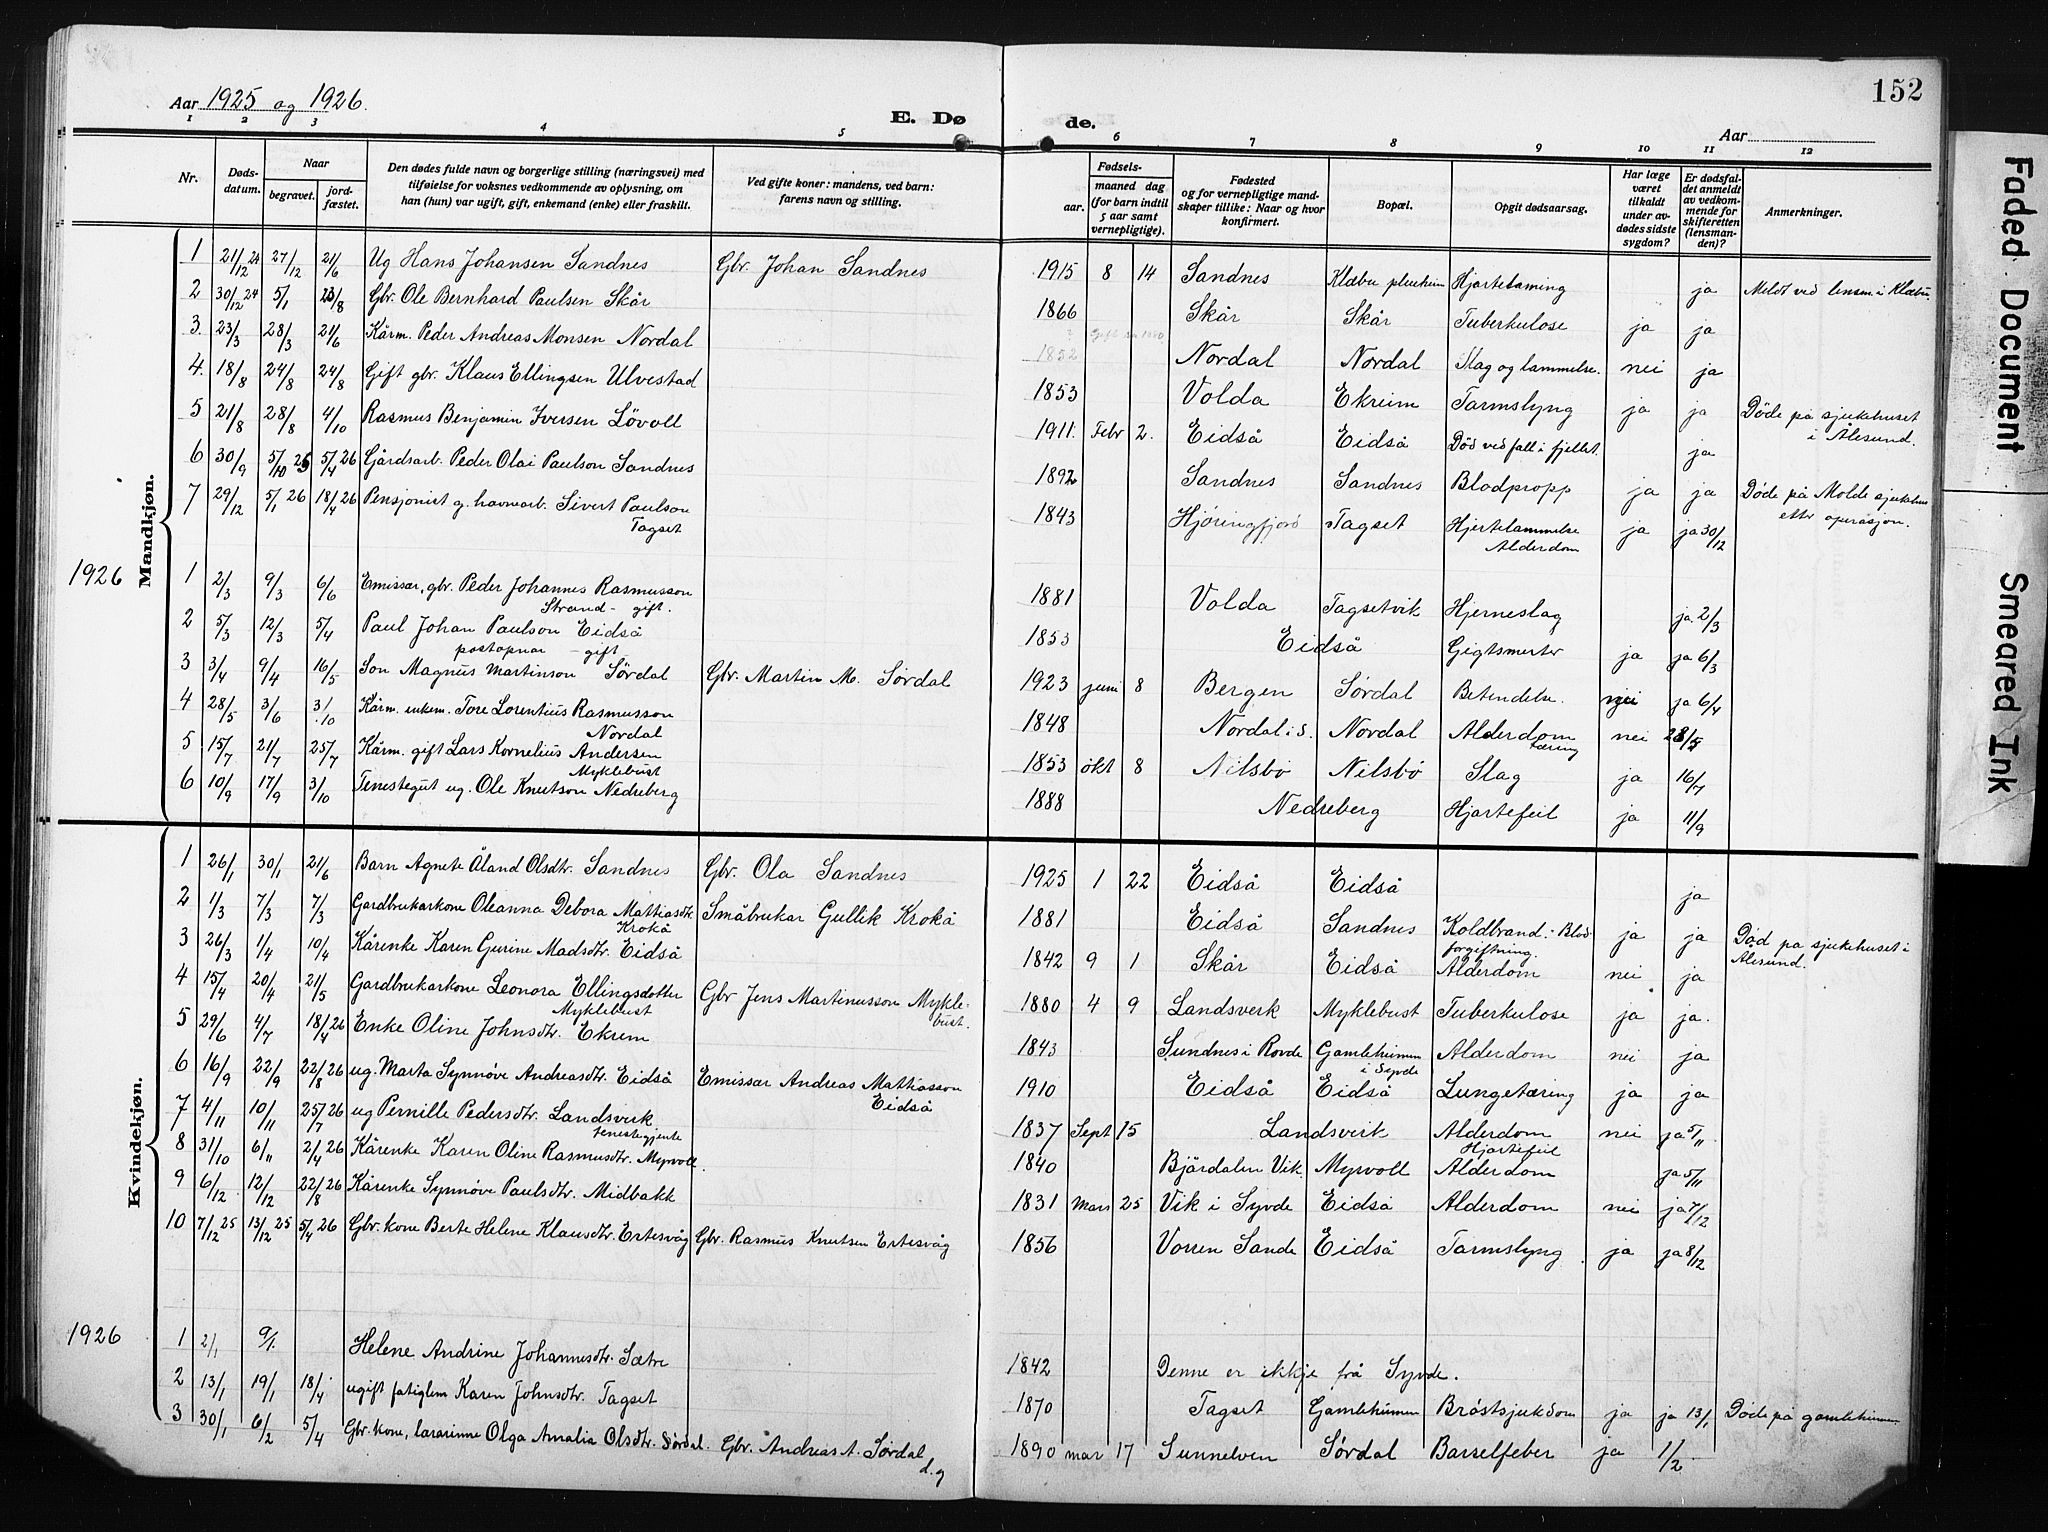 152
Aar 1925 og 1926.
E. Dø de.
Aar
1 2 3 4 5 6 7 8 9 10 11 12
Nr.
Døds-
datum.
Naar
begravet.
jord-
fæstet.
Den dødes fulde navn og borgerlige stilling (næringsvei) med
tilføielse for voksnes vedkommende av oplysning, om
han (hun) var ugift, gift, enkemand (enke) eller fraskilt.
Ved gifte koner: mandens, ved barn:
farens navn og stilling.
Fødsels-
aar.
maaned dag
(for barn indtil
5 aar samt
vernepligtige).
Fødested
og for vernepligtige mand-
skaper tillike: Naar og hvor
konfirmert.
Bopæl.
Opgit dødsaarsag.
Har læge
været
tilkaldt
under av-
dødes sidste
sygdom?
Er dødsfal-
det anmeldt
av vedkom-
mende for
skifteretten
(lensman-
den)?
Anmerkninger.
Mandkjøn.
1 21/12 24 27/12 21/6 Ug Hans Johansen Sandnes Gbr. Johan Sandnes 1915 8 14 Sandnes Klæbu pleiheim Hjartelaming ja Meldt ved lensm. i Klæbu.
2 30/12 24 5/1 23/8 Gbr. Ole Bernhard Paulsen Skår 1866 Skår Skår Tuberkulose ja ja
3. 23/3 28/3 21/6 Kårm. Peder Andreas Monsen Nordal 1852 Nordal Nordal Slag og lammelse. nei ja
4. 18/8 24/8 24/8 Gift gbr. Klaus Ellingsen Ulvestad 1853 Volda Ekreim Tarmslyng ja ja Døde på sjukehuset
i Ålesund.
5 21/8 28/8 4/10 Rasmus Benjamin Iversen Løvoll 1911. Febr 2. Eidså Eidså Død ved fall i fjellet. ja
6 30/9 5/10 25 5/4 26 Gårdsarb. Peder Olai Paulson Sandnes 1892 Sandnes Sandnes Blodpropp ja ja Døde på Molde sjukehus
etter operasjon.
7 29/12 5/1 26 18/4 26 Pensjonist g. havnearb. Sivert Paulson
Tagset 1843 Hjøringfjord Tagset Hjertelammelse
Alderdom ja ja 30/12
1926
1 2/3 9/3 6/6 Emissær, gbr. Peder Johannes Rasmusson
Strand - gift. 1881 Volda Tagsetvik Hjerneslag ja 2/3
2 5/3 12/3 5/4 Paul Johan Paulson Eidså
postopnar - gift 1853 Eidså Gigtsmerter ja ja 6/3
3 3/4 9/4 16/5 Son Magnus Martinson Sørdal Gbr. Martin M. Sørdal 1923 juni 8 Bergen Sørdal Betendelse. nei ja 6/4
4 28/5 3/6 3/10 Kårm. enkem. Tore Lorentius Rasmusson
Nordal 1848 Nordal i S. Nordal Alderdom
tæring nei 28/5
5 15/7 21/7 25/7 Kårm. gift Lars Kornelius Andersen
Myklebust 1853 økt 8 Nilsbø Nilsbø Slag ja 16/7
6 10/9 17/9 3/10 Tenestegut ug. Ole Knutson Nedreberg 1888 Nedreberg Hjartefeil ja 11/9
Kvindekjøn.
1 26/1 30/1 21/6 Barn Agnete Åland Olsdtr. Sandnes Gbr. Ola Sandnes 1925 1 22 Eidså Eidså ja
2 1/3 7/3 7/3 Gardbrukarkone Oleanna Debora Mattiasdtr.
Krokå Småbrukar Gullik Krokå 1881 Eidså Sandnes Koldbrand. - Blod-
forgiftning. ja ja Død på sjukehuset i
Ålesund.
3 26/3 1/4 10/4 Kårenke Karen Gurine Madsdtr. Eidså 1842 9 1 Skår Eidså Alderdom nei ja
4 15/4 20/4 21/5 Gardbrukarkone Leonora Ellingsdotter
Myklebust Gbr Jens Martinusson Mykle-
bust. 1880 4 9 Landsverk Myklebust Tuberkulose ja ja.
5 29/6 4/7 18/4 26 Enke Oline Johnsdtr. Ekrem 1843 Sundnes i Rovde Gamleheimen
i Syvde Alderdom nei ja
6 16/9 22/9 22/8 26 ug. Marta Synnøve Andreasdtr. Eidså Emissær Andreas Mattiasson
Eidså 1910 Eidså Eidså Lungetæring ja ja
7 4/11 10/11 25/7 26 ug Pernille Pedersdtr. Landsverk
tenestegjente 1837 Sept 15 Landsverk Alderdom
Hjartefeil nei ja 5/11
8 31/10 6/11 2/4 26 Kårenke Karen Oline Rasmusdtr. Myrvoll. 1840 Bjårdalen Vik Myrvoll Alderdom ja 5/11
9 6/12 12/12 22/8 26 Kårenke Synnøve Paulsdtr. Midbakk 1831 Mars 25 Vik i Syvde Eidså Alderdom nei ja 7/12
10 7/12 25 13/12 25 5/4 26 Gbr. kone Berte Helene Klausdtr. Ertesvåg Gbr. Rasmus Knutsen Ertesvåg 1856 Vorren Sande Eidså Tarmslyng ja ja 8/12
1926
1 2/1 9/1. Helene Andrine Johannesdtr. Sætre 1842 Denne er ikkje frå Syvde.
2 13/1 19/1 18/4 ugift fatiglem Karen Johnsdtr. Tagset 1870 Tagset Gamleheimen Brøstsjukdom ja ja 13/1 Døde på gamleheimen
3 30/1 6/2 5/4 Gbr. kone, lærarinne Olga Amalia Olsdtr. Sørdal. Gbr. Andreas A. Sørdal
d.y 1890 mar 17 Sunnelven Sørdal Barselfeber ja 1/2
Faded Document
Smeared Ink